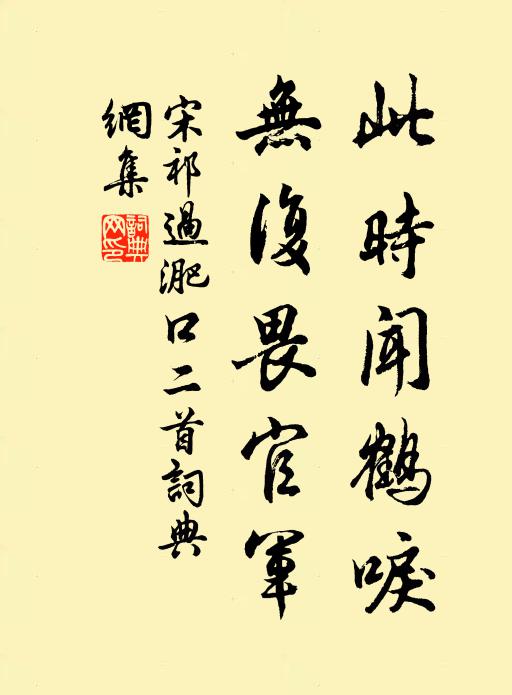 此時聞鶴唳
無復畏官軍
宋祁過淝口二首詞典
網集
詞典
网印